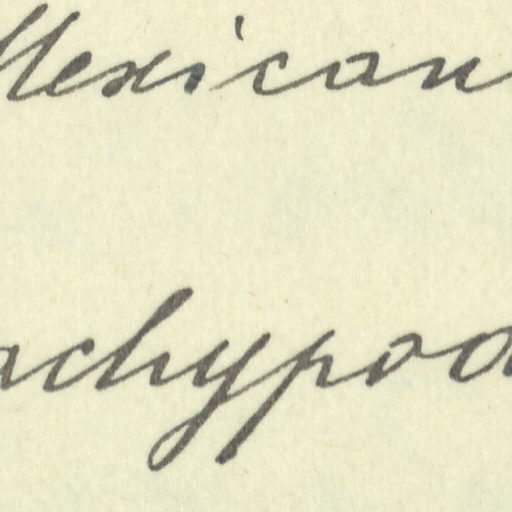 Mexican
achypod